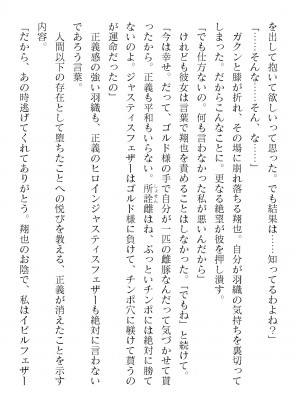 を出して抱いて欲しいって思った。でも結果は……知ってるわよね？」
「……そんな……そん、な……」
ガクンと膝が折れ、その場に崩れ落ちる翔也。自分が羽織の気持ちを裏切って
しまった。だからこんなことに。更なる絶望が彼を押し潰す。
「でも仕方ないの。何も言わなかった私が悪いんだから」
けれども彼女は言葉で翔也を責めることはしなかった。「でもね」と続けて。
「今は幸せ。だって、ゴルド様の手で自分が一匹の雌豚なんだって気づかせて貰
ったから。正義も平和もいらない。所詮雌はね、ぶっといチンポには絶対に勝て
ないのよ。ジャスティスフェザーはゴルド様に負けて、チンポ穴に躾けて貰うの
が運命だったの」
正義感の強い羽織も、正義のヒロインジャスティスフェザーも絶対に言わない
であろう言葉。
人間以下の存在として堕ちたことへの悦びを教える、正義が消えたことを示す
内容。
「だから、あの時逃げてくれてありがとう。翔也のお陰で、私はイビルフェザー